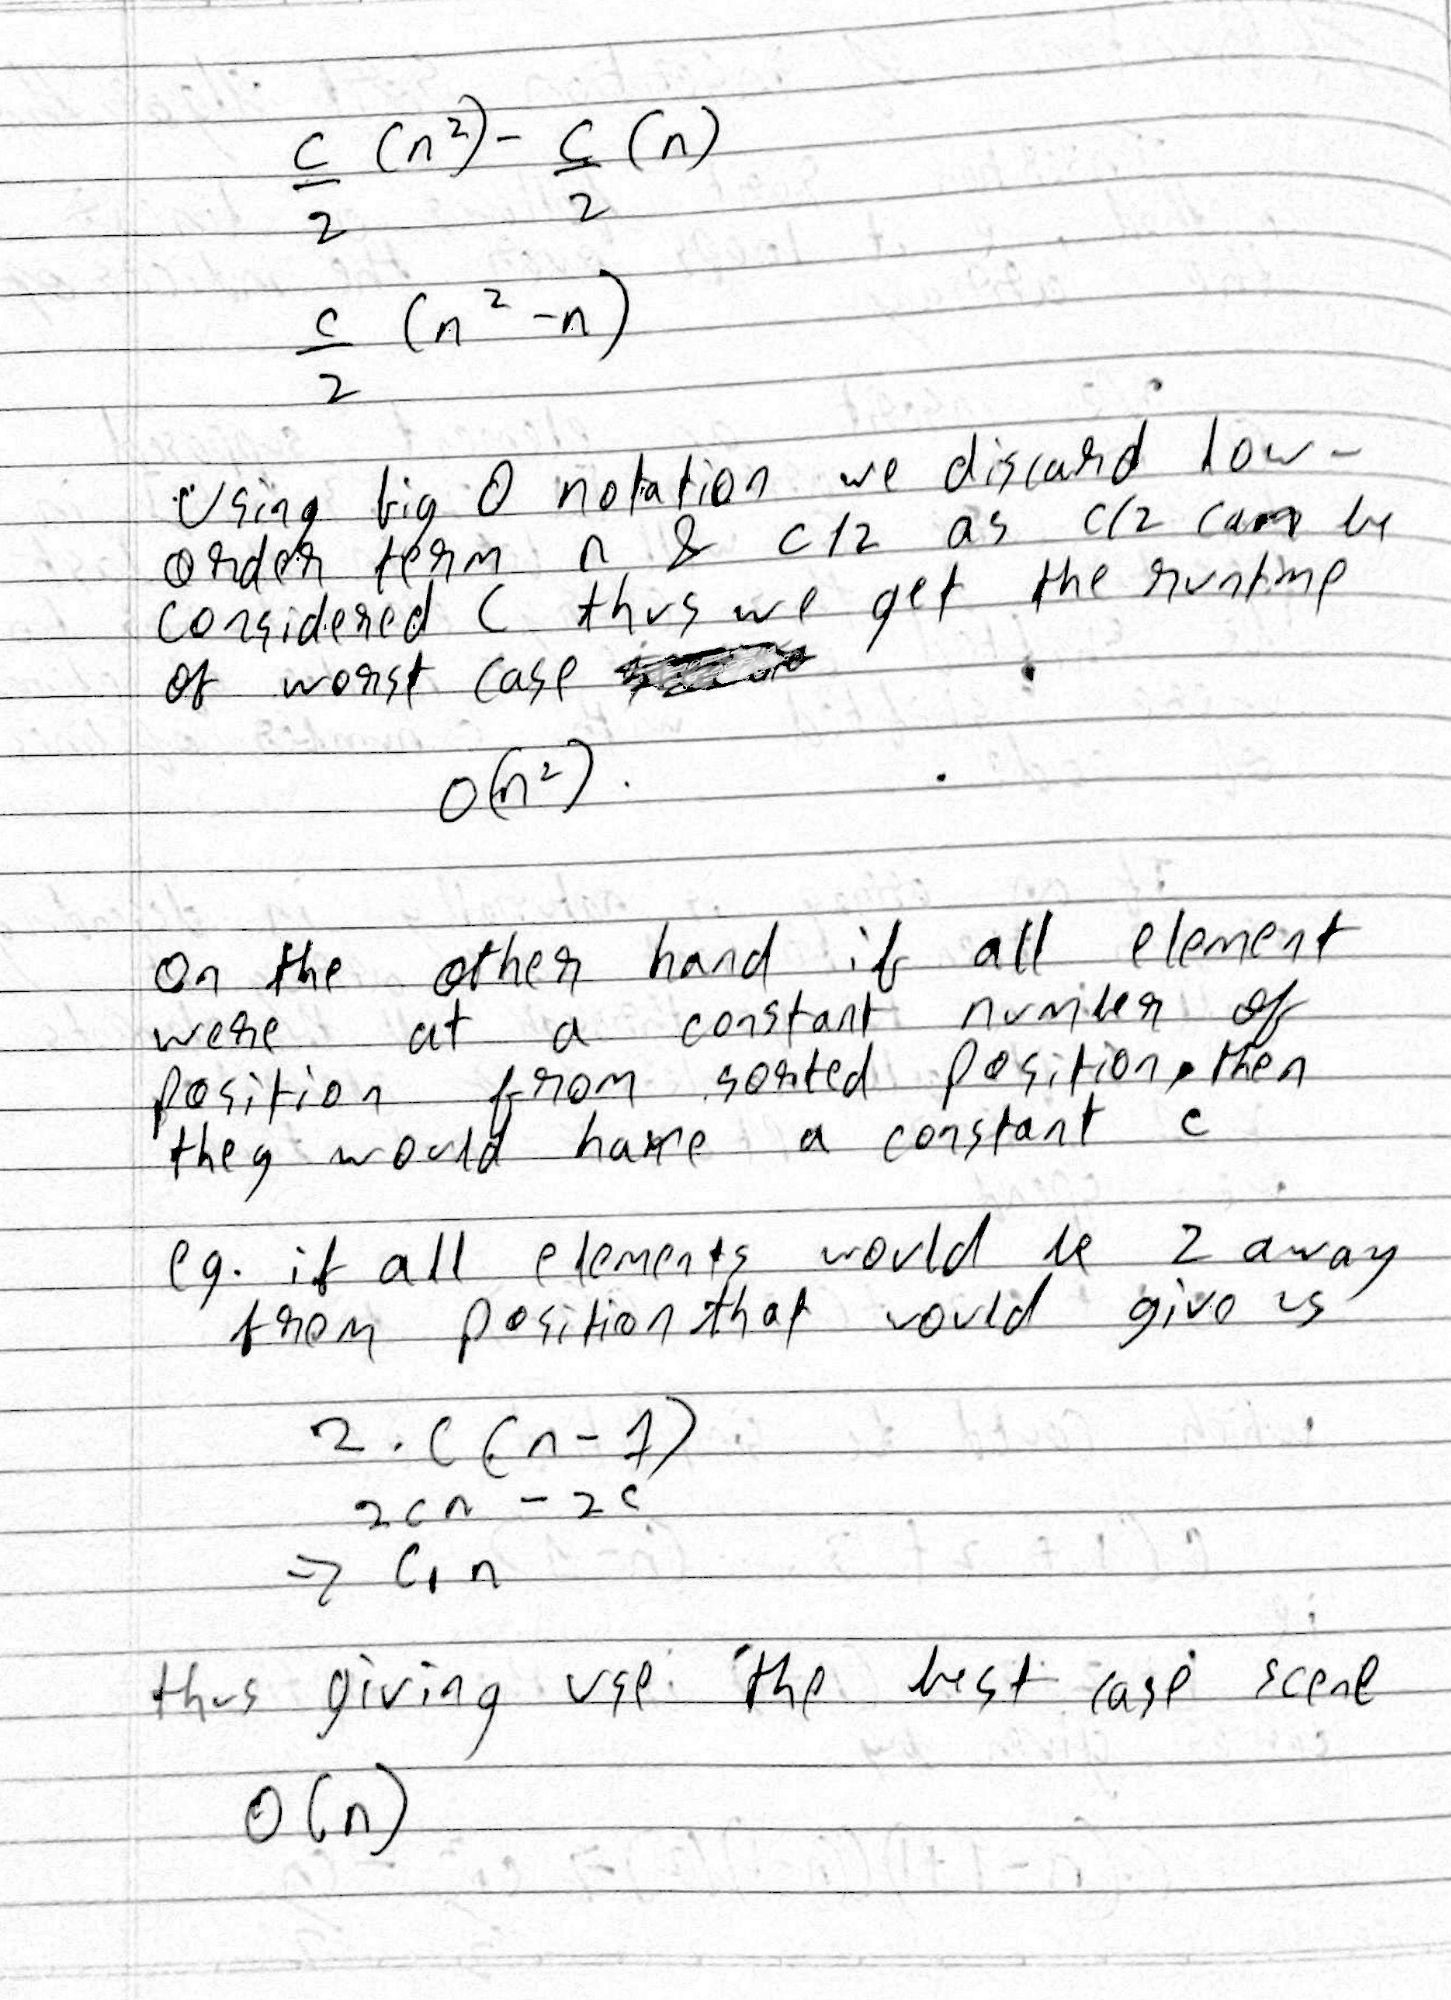 c/2 (n²) - c/2 (n)
c/2 (n² - n)
Using big O notation we discard low-
order term n & c/2 as c/2 can be
considered C thus we get the runtime
of worst case
O(n²).
On the other hand if all element
were at a constant number of
position from sorted position, then
they would have a constant c
eg. if all elements would be 2 away
from position that would give us
2 . C (n - 1)
2cn - 2c
=> C₁ n
thus giving use the best case scene
O(n)